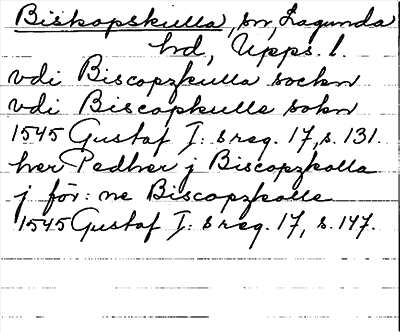 Biskopskulla, sn, Lagunda
hd, Upps. l.
vdi Biscopzkulla sockn
vdi Biscopkulle sokn
1545 Gustaf I: s reg. 17, s. 131.
her Pedher j Biscopzkolla
j för: ne Biscopzkolle
1545 Gustaf I: s reg. 17, s. 147.